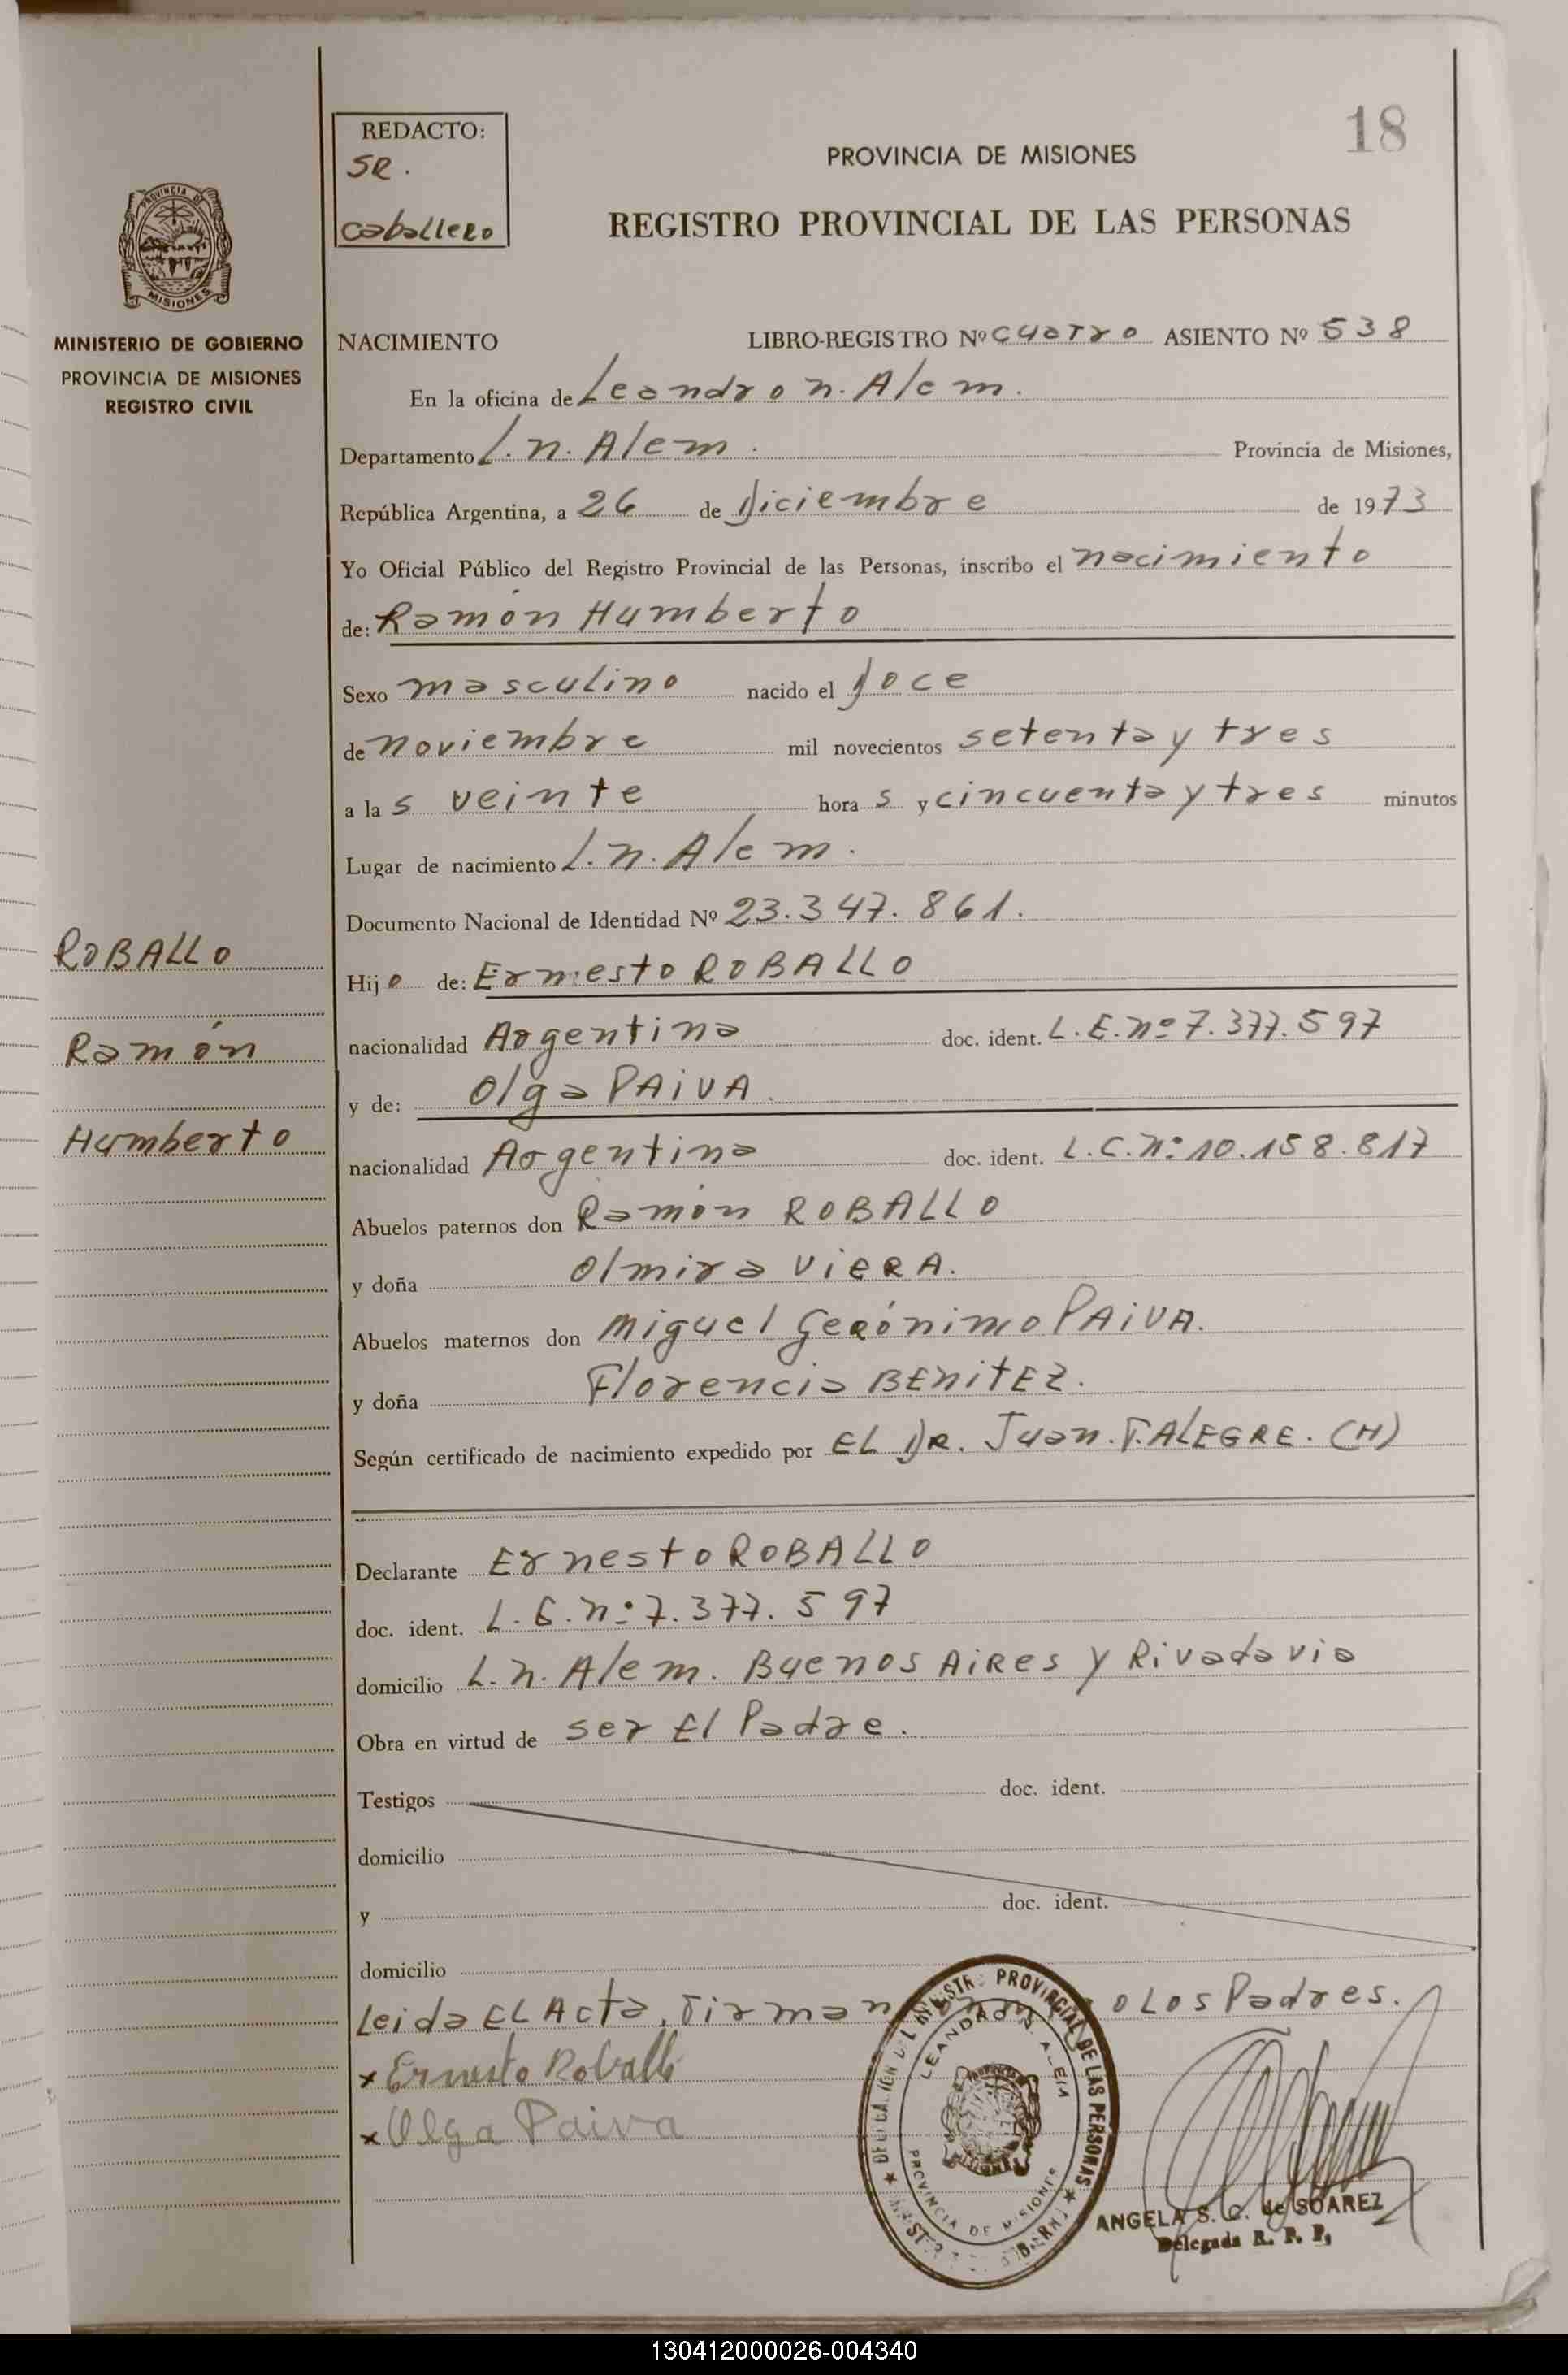 18
REDACTO:
SR.
Caballero
PROVINCIA DE MISIONES
REGISTRO PROVINCIAL DE LAS PERSONAS
PROVINCIA DE
MISIONES
MINISTERIO DE GOBIERNO
PROVINCIA DE MISIONES
REGISTRO CIVIL
NACIMIENTO LIBRO-REGISTRO Nº cuatro ASIENTO Nº 538
En la oficina de Leandro n. Alem.
Departamento L. n. Alem. Provincia de Misiones,
República Argentina, a 26 de Diciembre de 1973
Yo Oficial Público del Registro Provincial de las Personas, inscribo el nacimiento
de: Ramón Humberto
Sexo masculino nacido el doce
de noviembre mil novecientos setenta y tres
a las veinte horas y cincuenta y tres minutos
Lugar de nacimiento L. n. Alem.
Documento Nacional de Identidad Nº 23.347.861.
Hijo de: Ernesto ROBALLO
nacionalidad Argentina doc. ident. L.E.nº 7.377.597
y de: Olga PAIVA.
nacionalidad Argentina doc. ident. L.C.nº 10.158.817
Abuelos paternos don Ramón ROBALLO
y doña Olmira VIERA.
Abuelos maternos don Miguel Gerónimo PAIVA.
y doña Florencia BENITEZ.
Según certificado de nacimiento expedido por EL DR. Juan. F. ALEGRE. (H)
ROBALLO
Ramón
Humberto
Declarante Ernesto ROBALLO
doc. ident. L.E.nº 7.377.597
domicilio L. n. Alem. Buenos AIRES y Rivadavia
Obra en virtud de ser El Padre.
Testigos doc. ident.
domicilio
y doc. ident.
domicilio
Leida EL Acta, Firman o Los Padres.
x Ernesto Roballo
x Olga Paiva
PROVINCIAL DE LAS PERSONAS
LEANDRO N. ALEM
PROVINCIA DE MISIONES
ANGELA S. C. de SOAREZ
Delegada R. P. P,
130412000026-004340